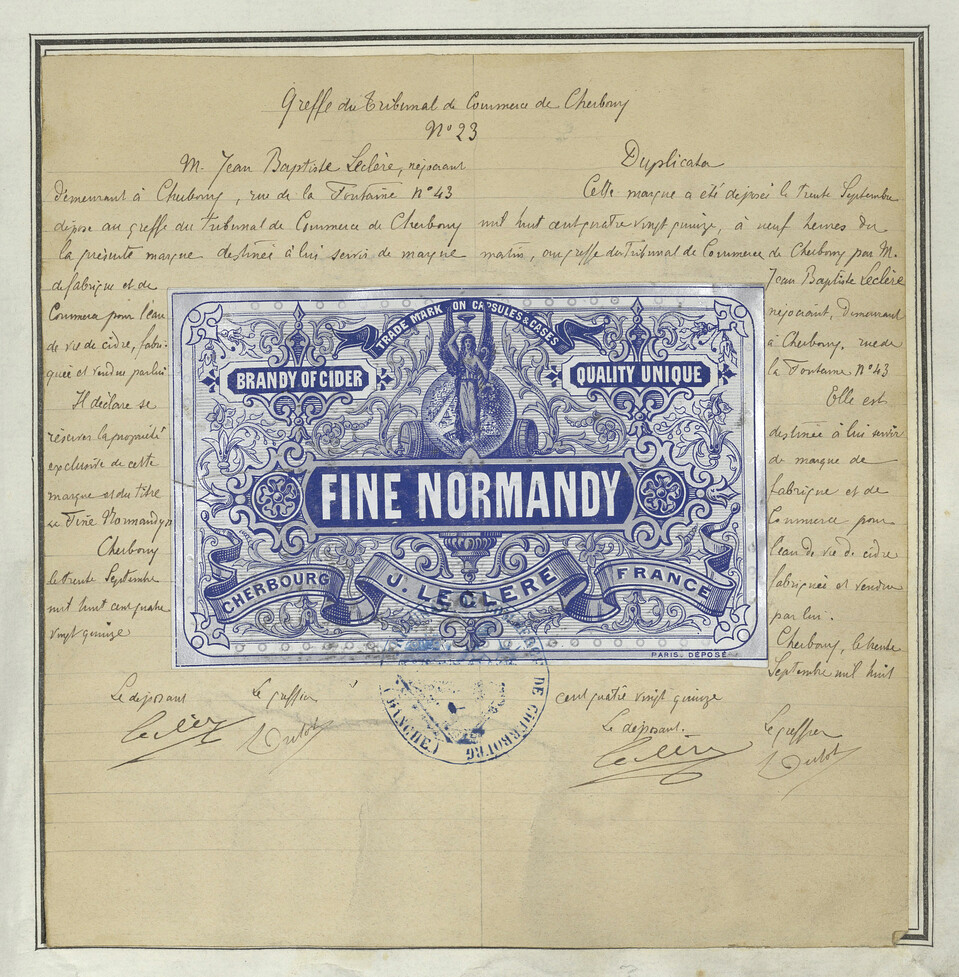 Greffe du Tribunal de Commerce de Cherbourg
N° 23
M. Jean Baptiste Leclère, négociant
demeurant à Cherbourg, rue de la Fontaine N° 43
dépose au greffe du Tribunal de Commerce de Cherbourg
la présente marque destinée à lui servir de marque
de fabrique et de
Commerce pour l'eau
de vie de cidre, fabri-
quée et vendue par lui
Il déclare se
réserver la propriété
exclusive de cette
marque et du titre
"Fine Normandy"
Cherbourg
le trente Septembre
mil huit cent quatre
vingt quinze
Le déposant
Le greffier
Leclère
Dutot
Duplicata
Cette marque a été déposé le trente Septembre
mil huit cent quatre vingt quinze, à neuf heures du
matin, au greffe du Tribunal de Commerce de Cherbourg par M.
Jean Baptiste Leclère
négociant, Demeurant
à Cherbourg, rue de
la Fontaine N° 43
Elle est
destinée à lui servir
de marque de
fabrique et de
Commerce pour
l'eau de vie de cidre
fabriquée et vendue
par lui.
Cherbourg, le trente
Septembre mil huit
cent quatre vingt quinze
Le déposant.
Le greffier
Leclère
Dutot
TRADE MARK ON CAPSULES & CASES
BRANDY OF CIDER
QUALITY UNIQUE
FINE NORMANDY
CHERBOURG
J. LECLERE
FRANCE
PARIS. DÉPOSÉ
DE CHERBOURG
(MANCHE)